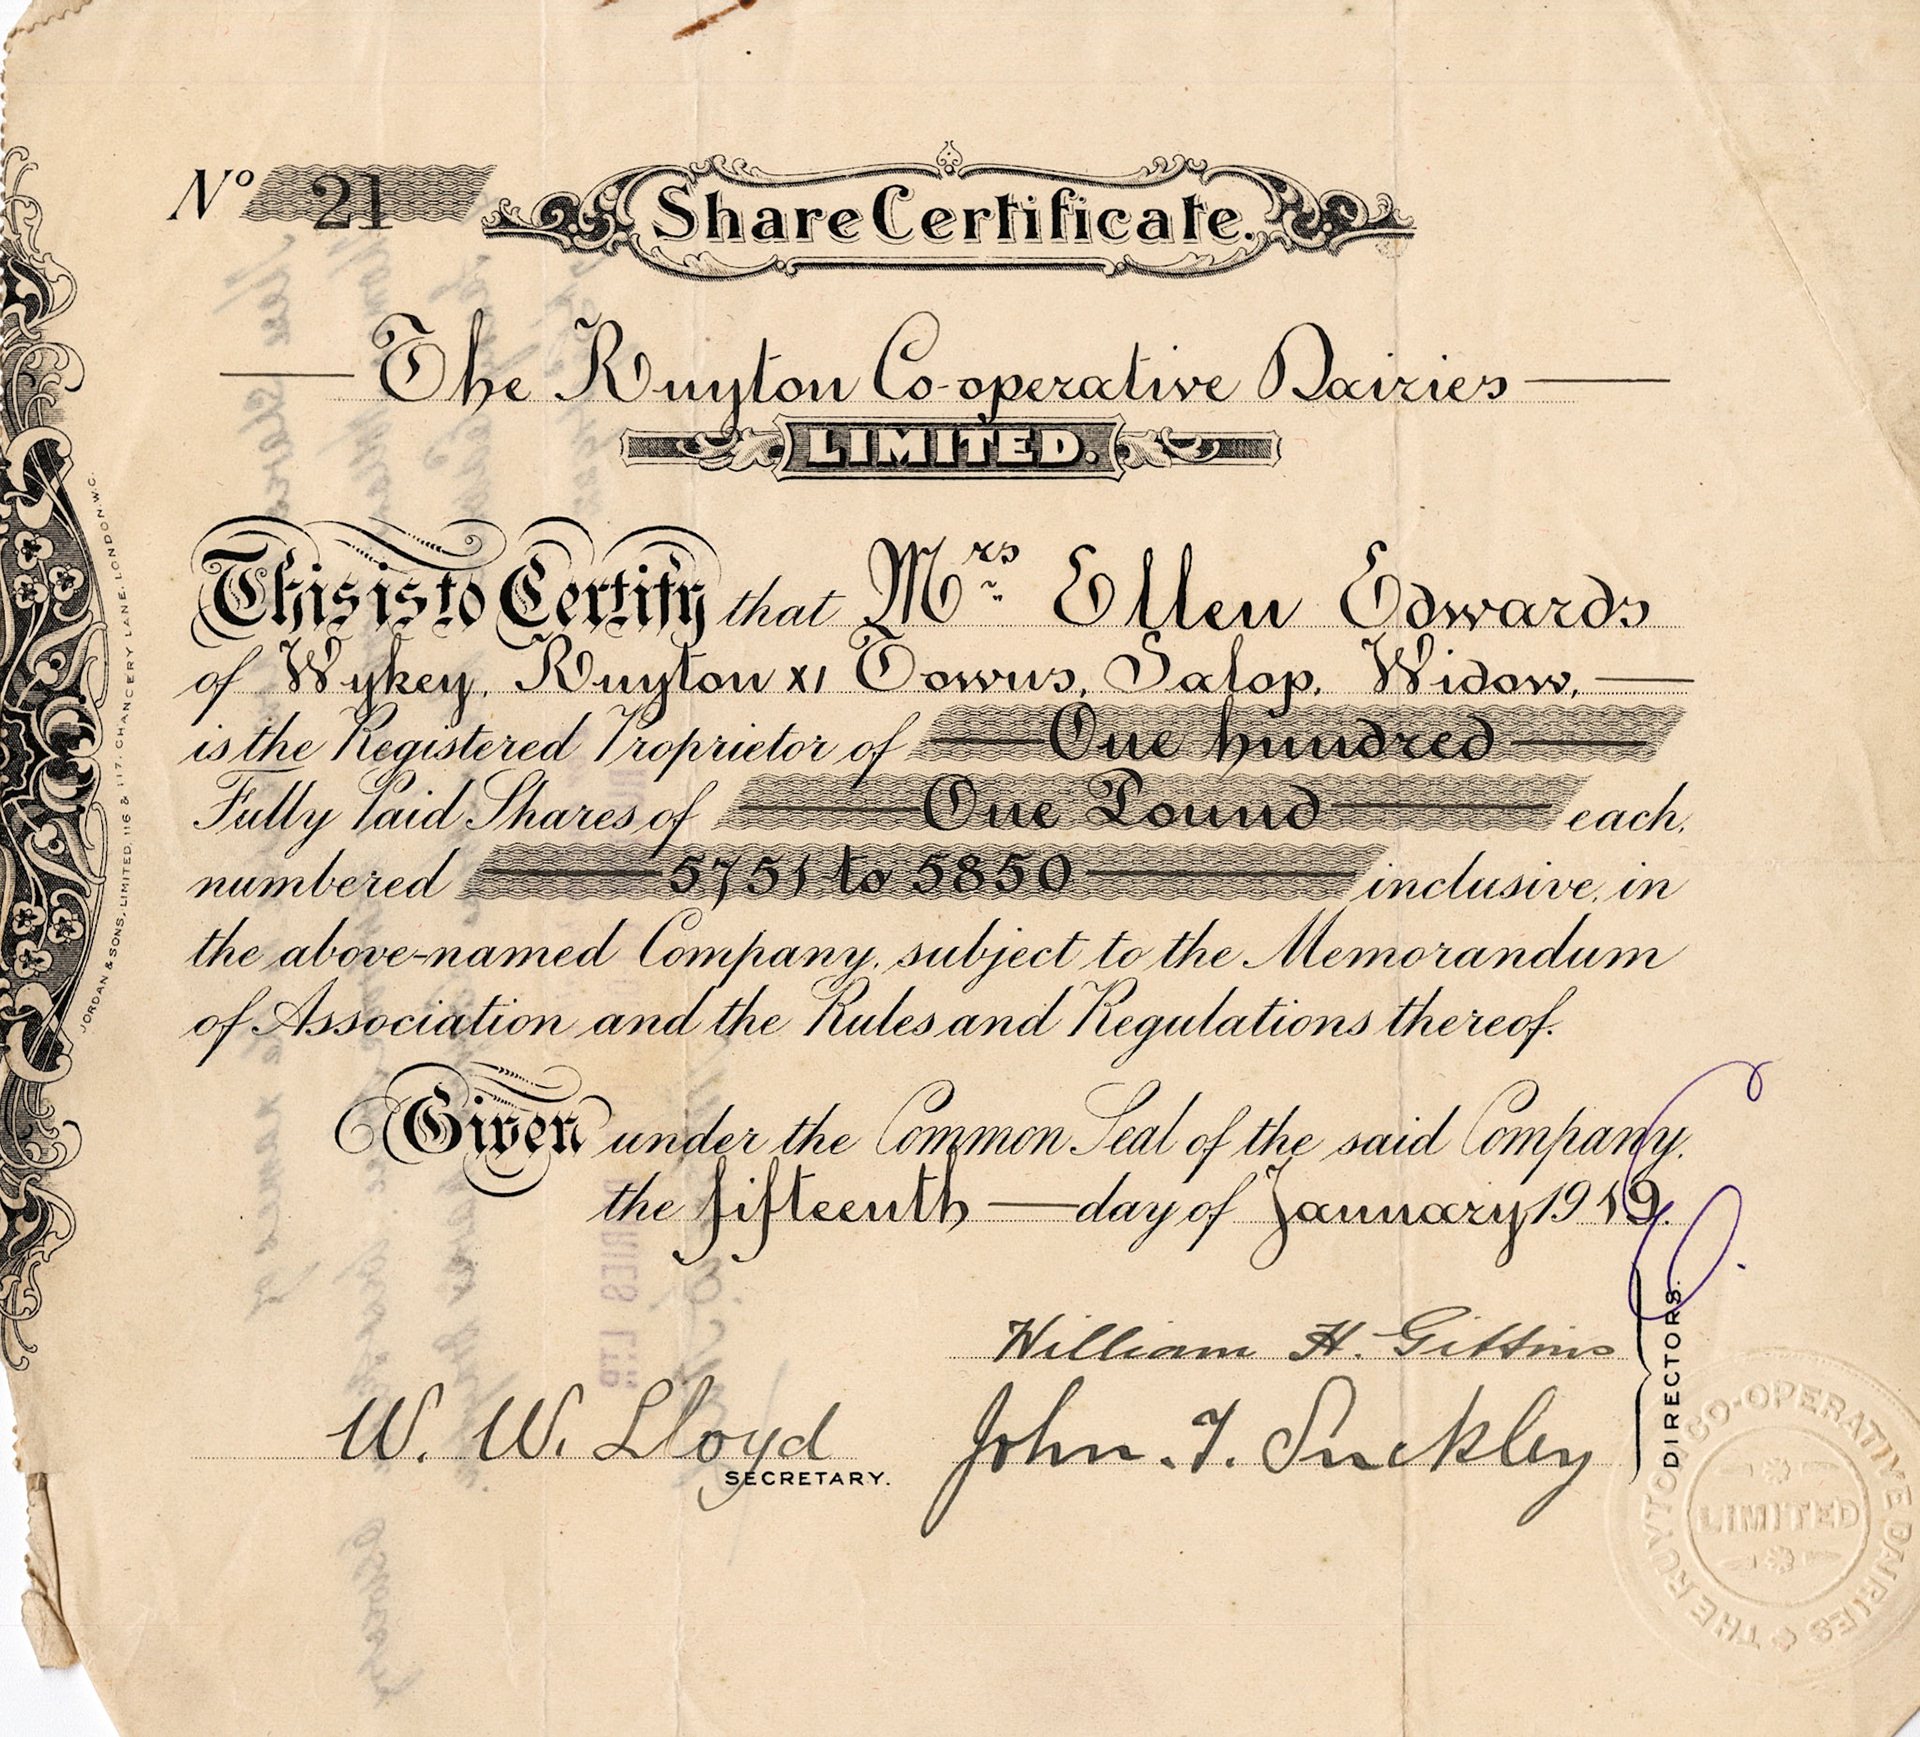 Nº 21
Share Certificate.
The Ruyton Co-operative Dairies
LIMITED.
This is to Certify that Mrs Ellen Edwards
of Wykey, Ruyton XI Towns, Salop, Widow,
is the Registered Proprietor of One hundred
Fully Paid Shares of One Pound each,
numbered 5751 to 5850 inclusive, in
the above-named Company, subject to the Memorandum
of Association and the Rules and Regulations thereof.
Given under the Common Seal of the said Company,
the fifteenth day of January 1919.
William H. Gittins
W. W. Lloyd
SECRETARY.
John. T. Suckley
DIRECTORS.
JORDAN & SONS, LIMITED. 116 & 117, CHANCERY LANE, LONDON, W.C.
THE RUYTON CO-OPERATIVE DAIRIES
LIMITED